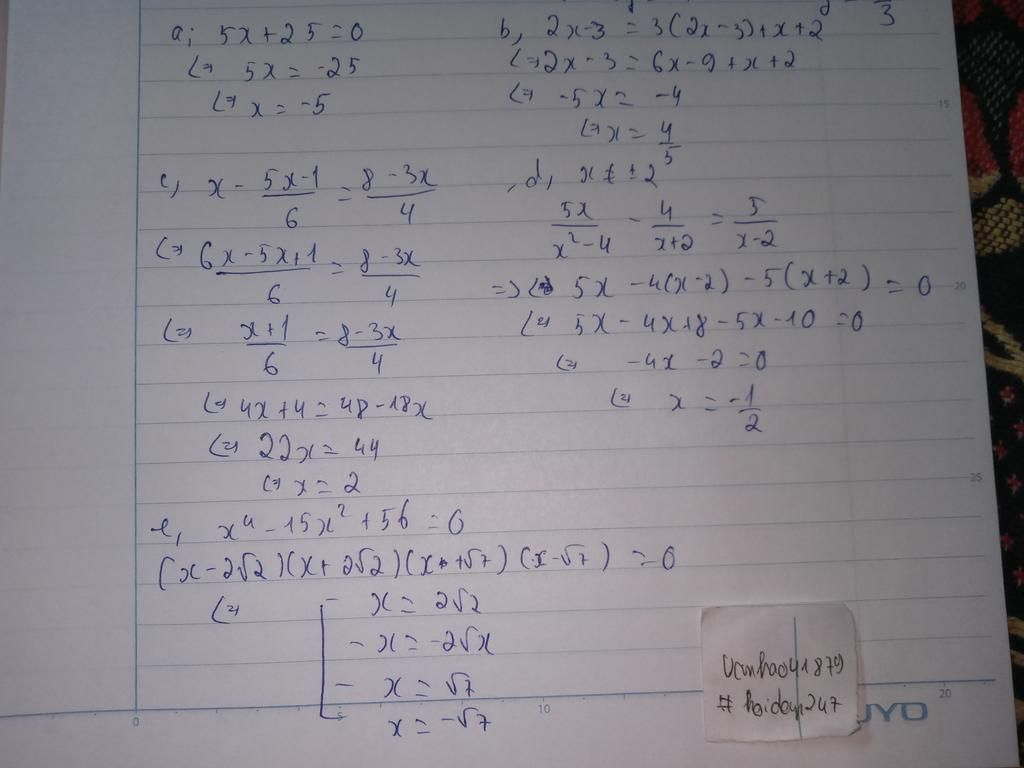 a; 5x+25=0
⇔ 5x = -25
⇔ x = -5
b, 2x-3 = 3(2x-3)+x+2
⇔ 2x-3 = 6x-9+x+2
⇔ -5x = -4
⇔ x = 4/5
c, x - (5x-1)/6 = (8-3x)/4
⇔ (6x-5x+1)/6 = (8-3x)/4
⇔ (x+1)/6 = (8-3x)/4
⇔ 4x+4 = 48-18x
⇔ 22x = 44
⇔ x = 2
, d, x ≠ ±2
5x/(x²-4) - 4/(x+2) = 5/(x-2)
=> 5x - 4(x-2) - 5(x+2) = 0
⇔ 5x - 4x+8 - 5x-10 = 0
⇔ -4x - 2 = 0
⇔ x = -1/2
e, x⁴ - 15x² + 56 = 0
(x-2√2)(x+2√2)(x+√7)(x-√7) = 0
⇔ x = 2√2
- x = -2√x
- x = √7
x = -√7
# hoidap247
15
20
25
0
5
10
20